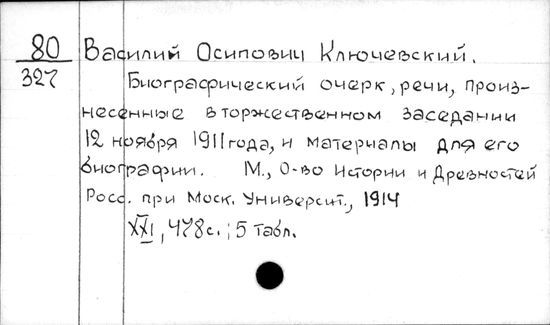 80 Василий Осипович Ключевский.
327 Биографический очерк, речи, произ-
несенные в торжественном заседании
12 ноября 1911 года, и материалы для его
биографии. М., О-во Истории и Древностей
Росс. при Моск. Университ., 1914
XXI, 478с.; 5 табл.